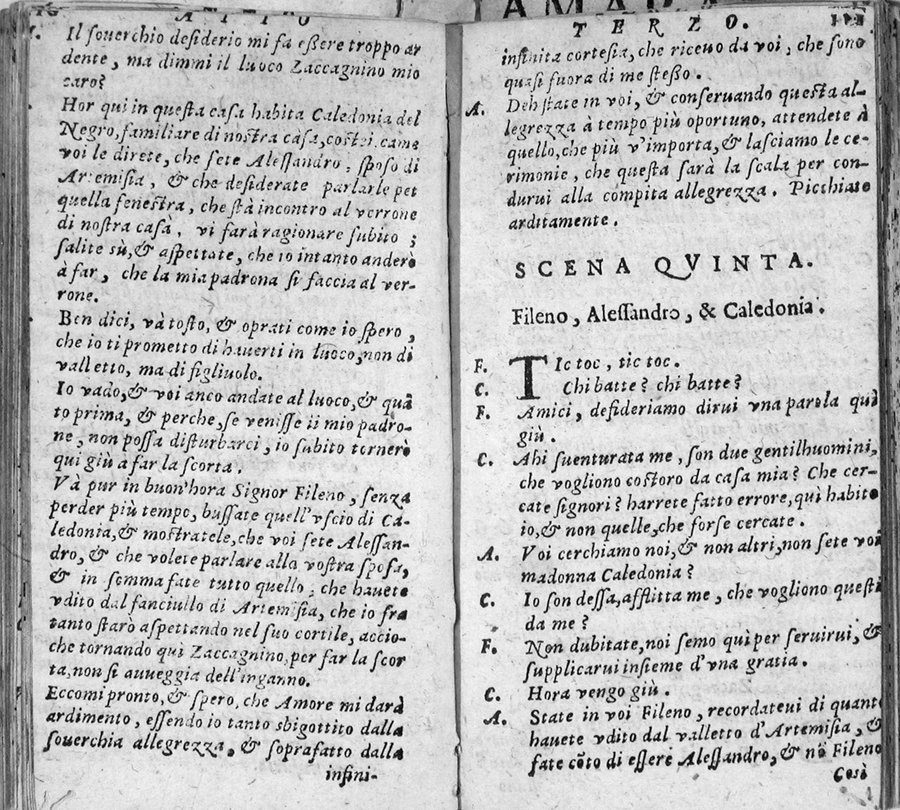 ATTO
Il souerchio desiderio mi fa eßere troppo ar
dente, ma dimmi il luoco Zaccagnino mio
caro?
Hor qui in questa casa habita Caledonia del
Negro, familiare di nostra casa, costei came
voi le direte, che sete Alessandro, sposo di
Artemisia, & che desiderate parlarle per
quella fenestra, che stà incontro al verrone
di nostra casà, vi farà ragionare subito;
salite sù, & aspettate, che io intanto anderò
à far, che la mia padrona si faccia al ver-
rone.
Ben dici, và tosto, & oprati come io spero,
che io ti prometto di hauerti in luoco, non di
valletto, ma di figliuolo.
Io vado, & voi anco andate al luoco, & quā
to prima, & perche, se venisse il mio padro-
ne, non possa disturbarci, io subito ternerò
qui giù à far la scorta.
Và pur in buon'hora Signor Fileno, senza
perder più tempo, bussate quell'vscio di Ca-
ledonia, & mostratele, che voi sete Alessan-
dro, & che volete parlare alla vostra sposa,
& in somma fate tutto quello, che hauete
vdito dal fanciullo di Artemisia, che io fra
tanto starò aspettando nel suo cortile, accio-
che tornando quì Zaccagnino, per far la scor
ta, non si auueggia dell'inganno.
Eccomi pronto, & spero, che Amore mi darà
ardimento, essendo io tanto sbigottito dalla
souerchia allegrezza, & soprafatto dalla
infini-
TERZO.
infinita cortesia, che riceuo da voi, che sono
quasi fuora di me steßo.
A. Deh state in voi, & conseruando questa al-
legrezza à tempo più oportuno, attendete à
quello, che più v'importa, & lasciamo le ce-
rimonie, che questa sarà la scala per con-
durui alla compita allegrezza. Picchiate
arditamente.
SCENA QVINTA.
Fileno, Alessandro, & Caledonia.
F. TIc toc, tic toc.
C. Chi batte? chi batte?
F. Amici, desideriamo dirui vna parola quà
giù.
C. Ahi suenturata me, son due gentilhuomini,
che vogliono costoro da casa mia? Che cer-
cate signori? harrete fatto errore, qui habito
io, & non quelle, che forse cercate.
A. Voi cerchiamo noi, & non altri, non sete voi
madonna Caledonia?
C. Io son dessa, afflitta me, che vogliono questi
da me?
F. Non dubitate, noi semo quì per seruirui, &
supplicarui insieme d'vna gratia.
C. Hora vengo giù.
A. State in voi Fileno, recordateui di quanto
hauete vdito dal valletto d'Artemisia, &
fate cōto di essere Alessandro, & nō Fileno
Così